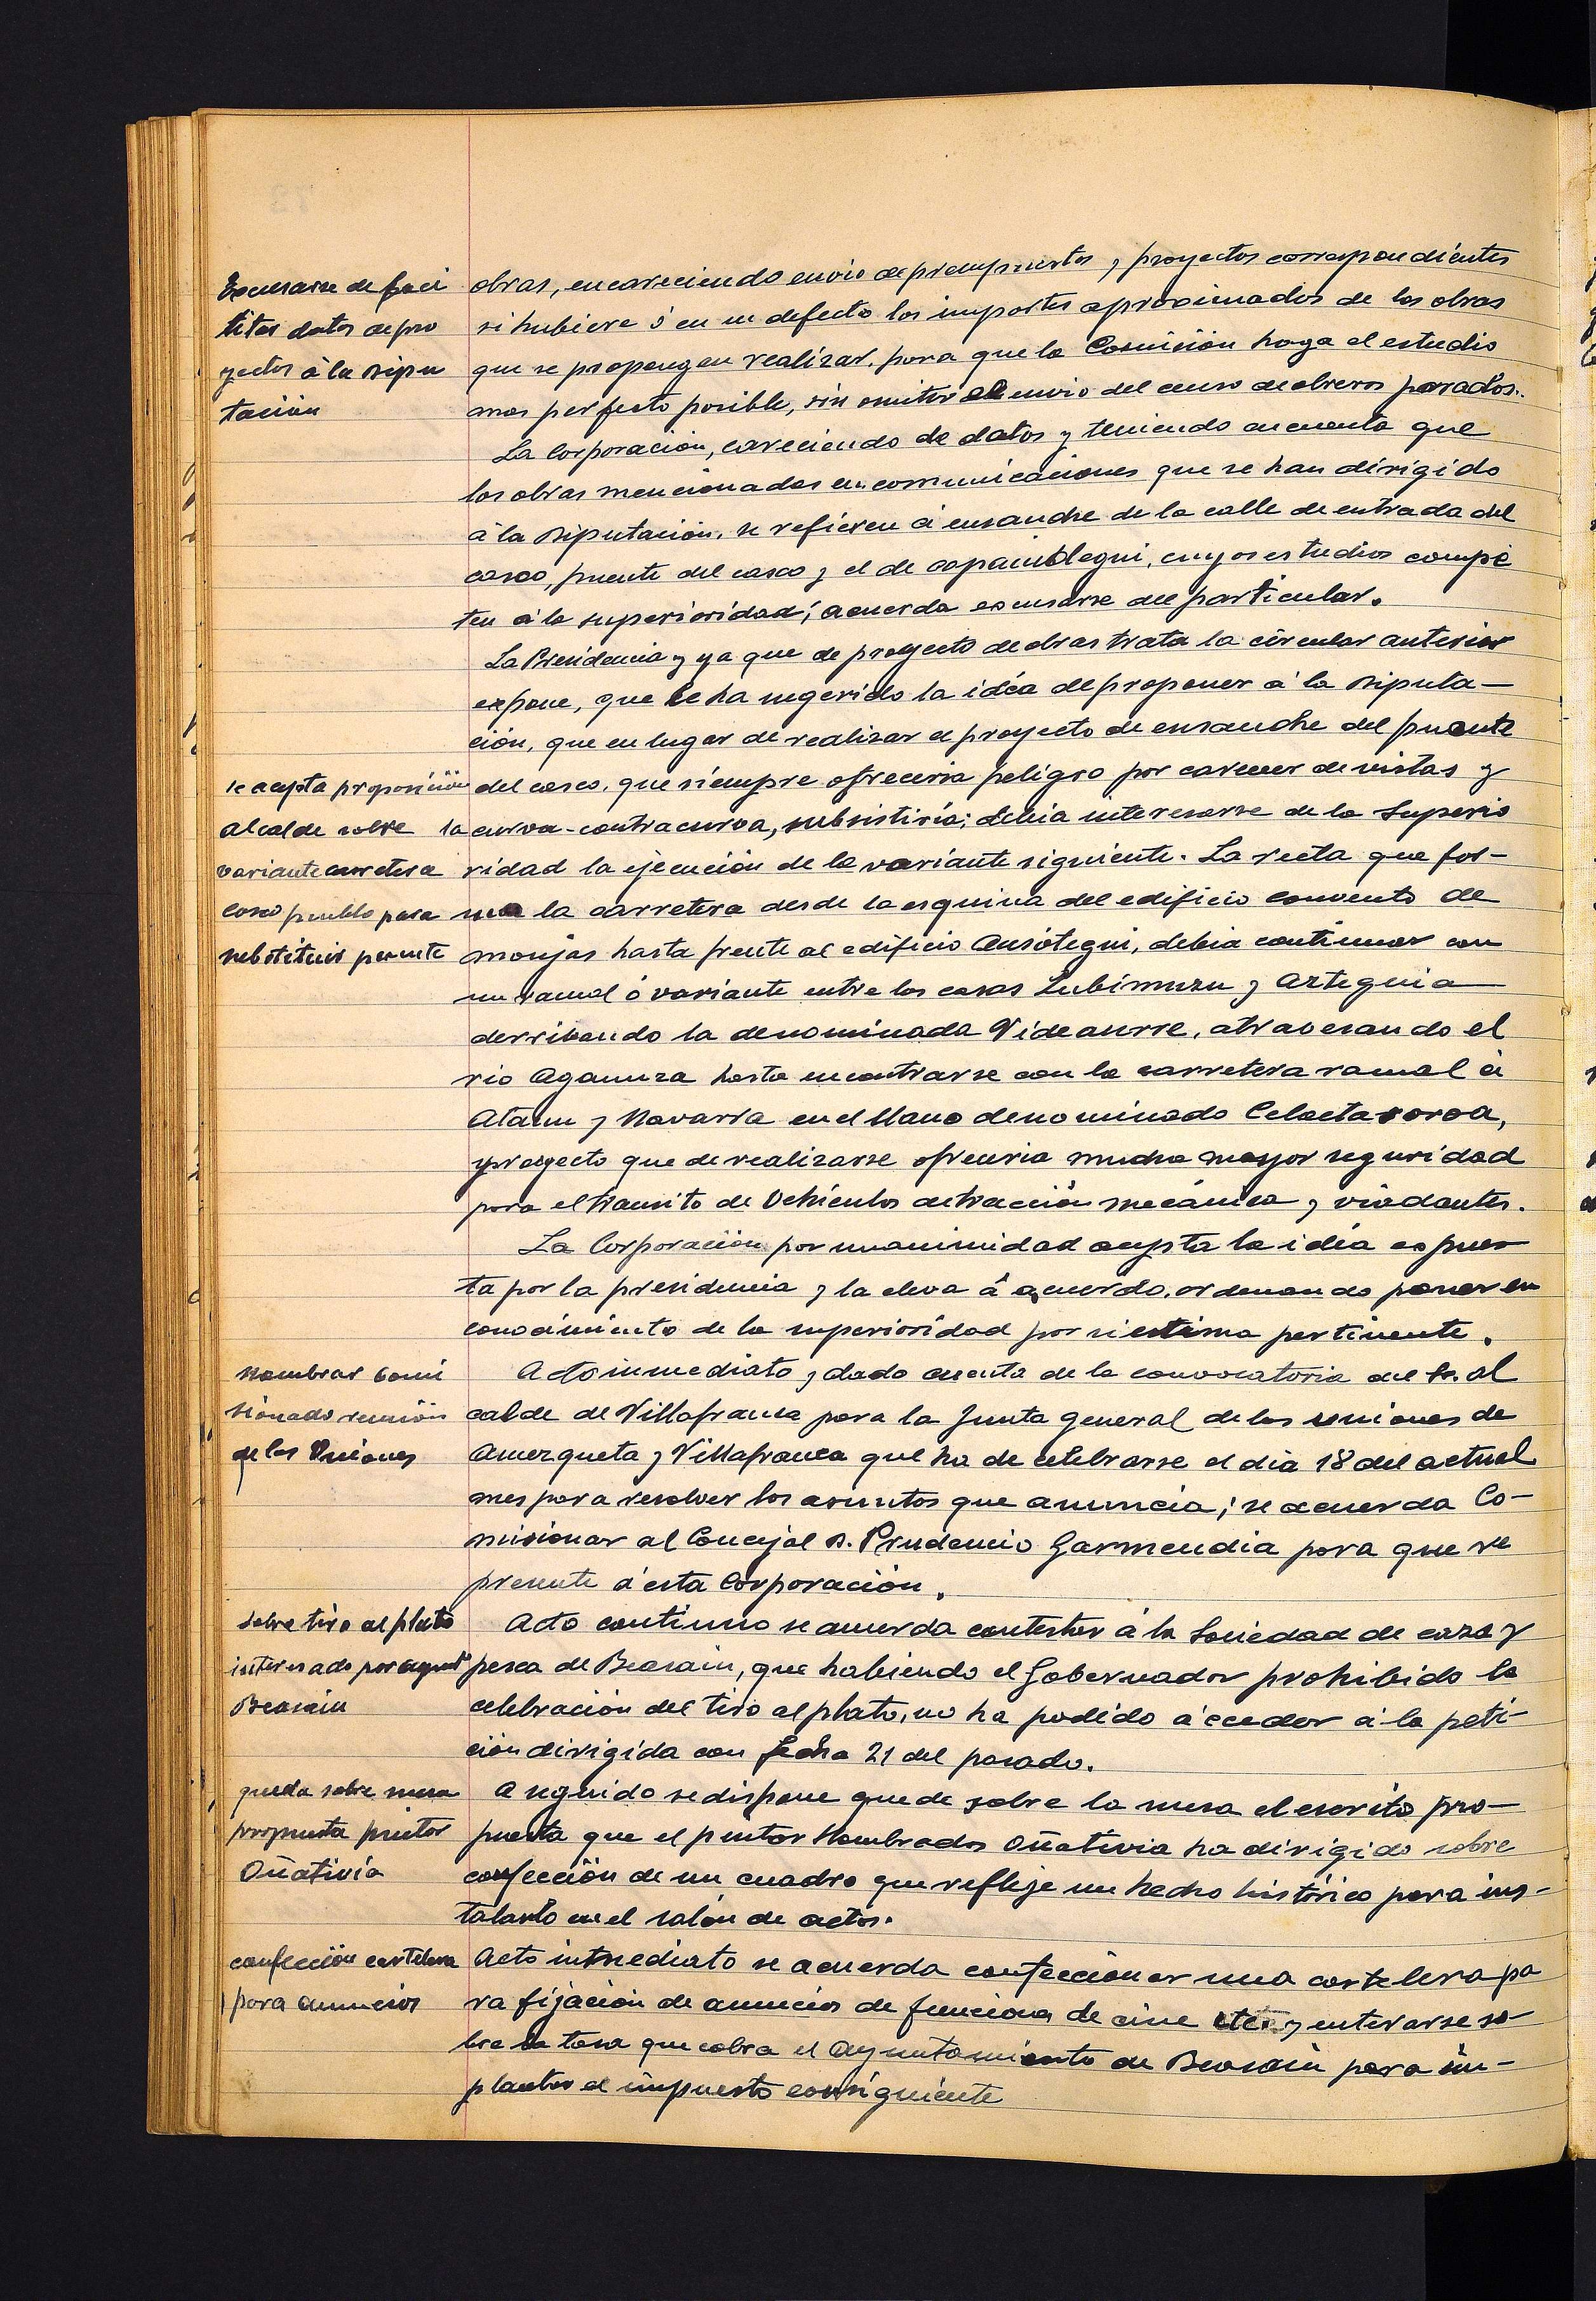 Excusarse de faci
litar datos de pro
yectos á la Dipu
tación
obras, encareciendo envio de presupuestos y proyectos correspondientes
si hubiere ó en su defecto los importes aproximados de las obras
que se propongan realizar, para que la Comisión haga el estudio
mas perfecto posible, sin omitir el envio del censo de obreros parados.
La Corporación, careciendo de datos y teniendo en cuenta que
las obras mencionadas en comunicaciones que se han dirigido
á la Diputación, se refieren á ensanche de la calle de entrada del
casco, puente del casco y el de, cuyos estudios compe
ten á la superioridad; acuerda excusarse del particular.
La Presidencia y ya que de proyecto de obras trata la circular anterior
expone, que le ha sugerido la idéa de proponer á la Diputa-
ción, que en lugar de realizar el proyecto de ensanche del puente
se acepta proposición
alcalde sobre la
variante carretera
casco pueblo para
substituir puente
del casco, que siempre ofreceria peligro por carecer de vistas y
curva-contracurva, subsistiría; debia interesarse de la Superio
ridad la ejecución de la variante siguiente. La recta que for-
ma la carretera desde la esquina del edificio convento de
monjas hasta frente al edificio Ausótegui, debia continuar con
un ramal ó variante entre las casas Zubimuzu y Arteguia
derribando la denominada Videaurre, atravesando el
rio Agaunza hasta encontrarse con la carretera ramal á
Ataun y Navarra en el llano denominado Celaetaxoroa,
proyecto que de realizarse ofreceria mucha mayor seguridad
para el transito de Vehiculos de tracción mecánica y viadantes.
La Corporación por unanimidad acepta la idéa expues
ta por la presidencia y la eleva á acuerdo, ordenando poner en
conocimiento de la superioridad por si estima pertinente.
Nombrar comi
sionado reunión
de las Uniones
Acto inmediato y dado cuenta de la convocatoria del Sr. al
calde de Villafranca para la Junta general de las uniones de
Amezqueta y Villafranca que ha de celebrarse el dia 18 del actual
mes para resolver los asuntos que anuncia; se acuerda Co-
misionar al Concejal D. Prudencio Garmendia para que re
presente á esta Corporación.
sobre tiro al plato
interesado por
Beasain
Acto continuo se acuerda contestar á la Sociedad de caza y
pesca de Beasain, que habiendo el Gobernador prohibido la
celebración del tiro al plato, no ha podido acceder á la peti-
ción dirigida con fecha 21 del pasado.
queda sobre mesa
propuesta pintor
Oñativía
A seguido se dispone quede sobre la mesa el escrito pro-
puesta que el pintor Hombrados Oñativia ha dirigido sobre
confección de un cuadro que refleje un hecho histórico para ins-
talarlo en el salón de actos.
confección cartelera
para anuncios
Acto inmediato se acuerda confeccionar una cartelera pa
ra fijación de anuncios de funciones de cine etc. y enterarse so-
bre la tasa que cobra el Ayuntamiento de Beasain para im-
plantar el impuesto consiguiente